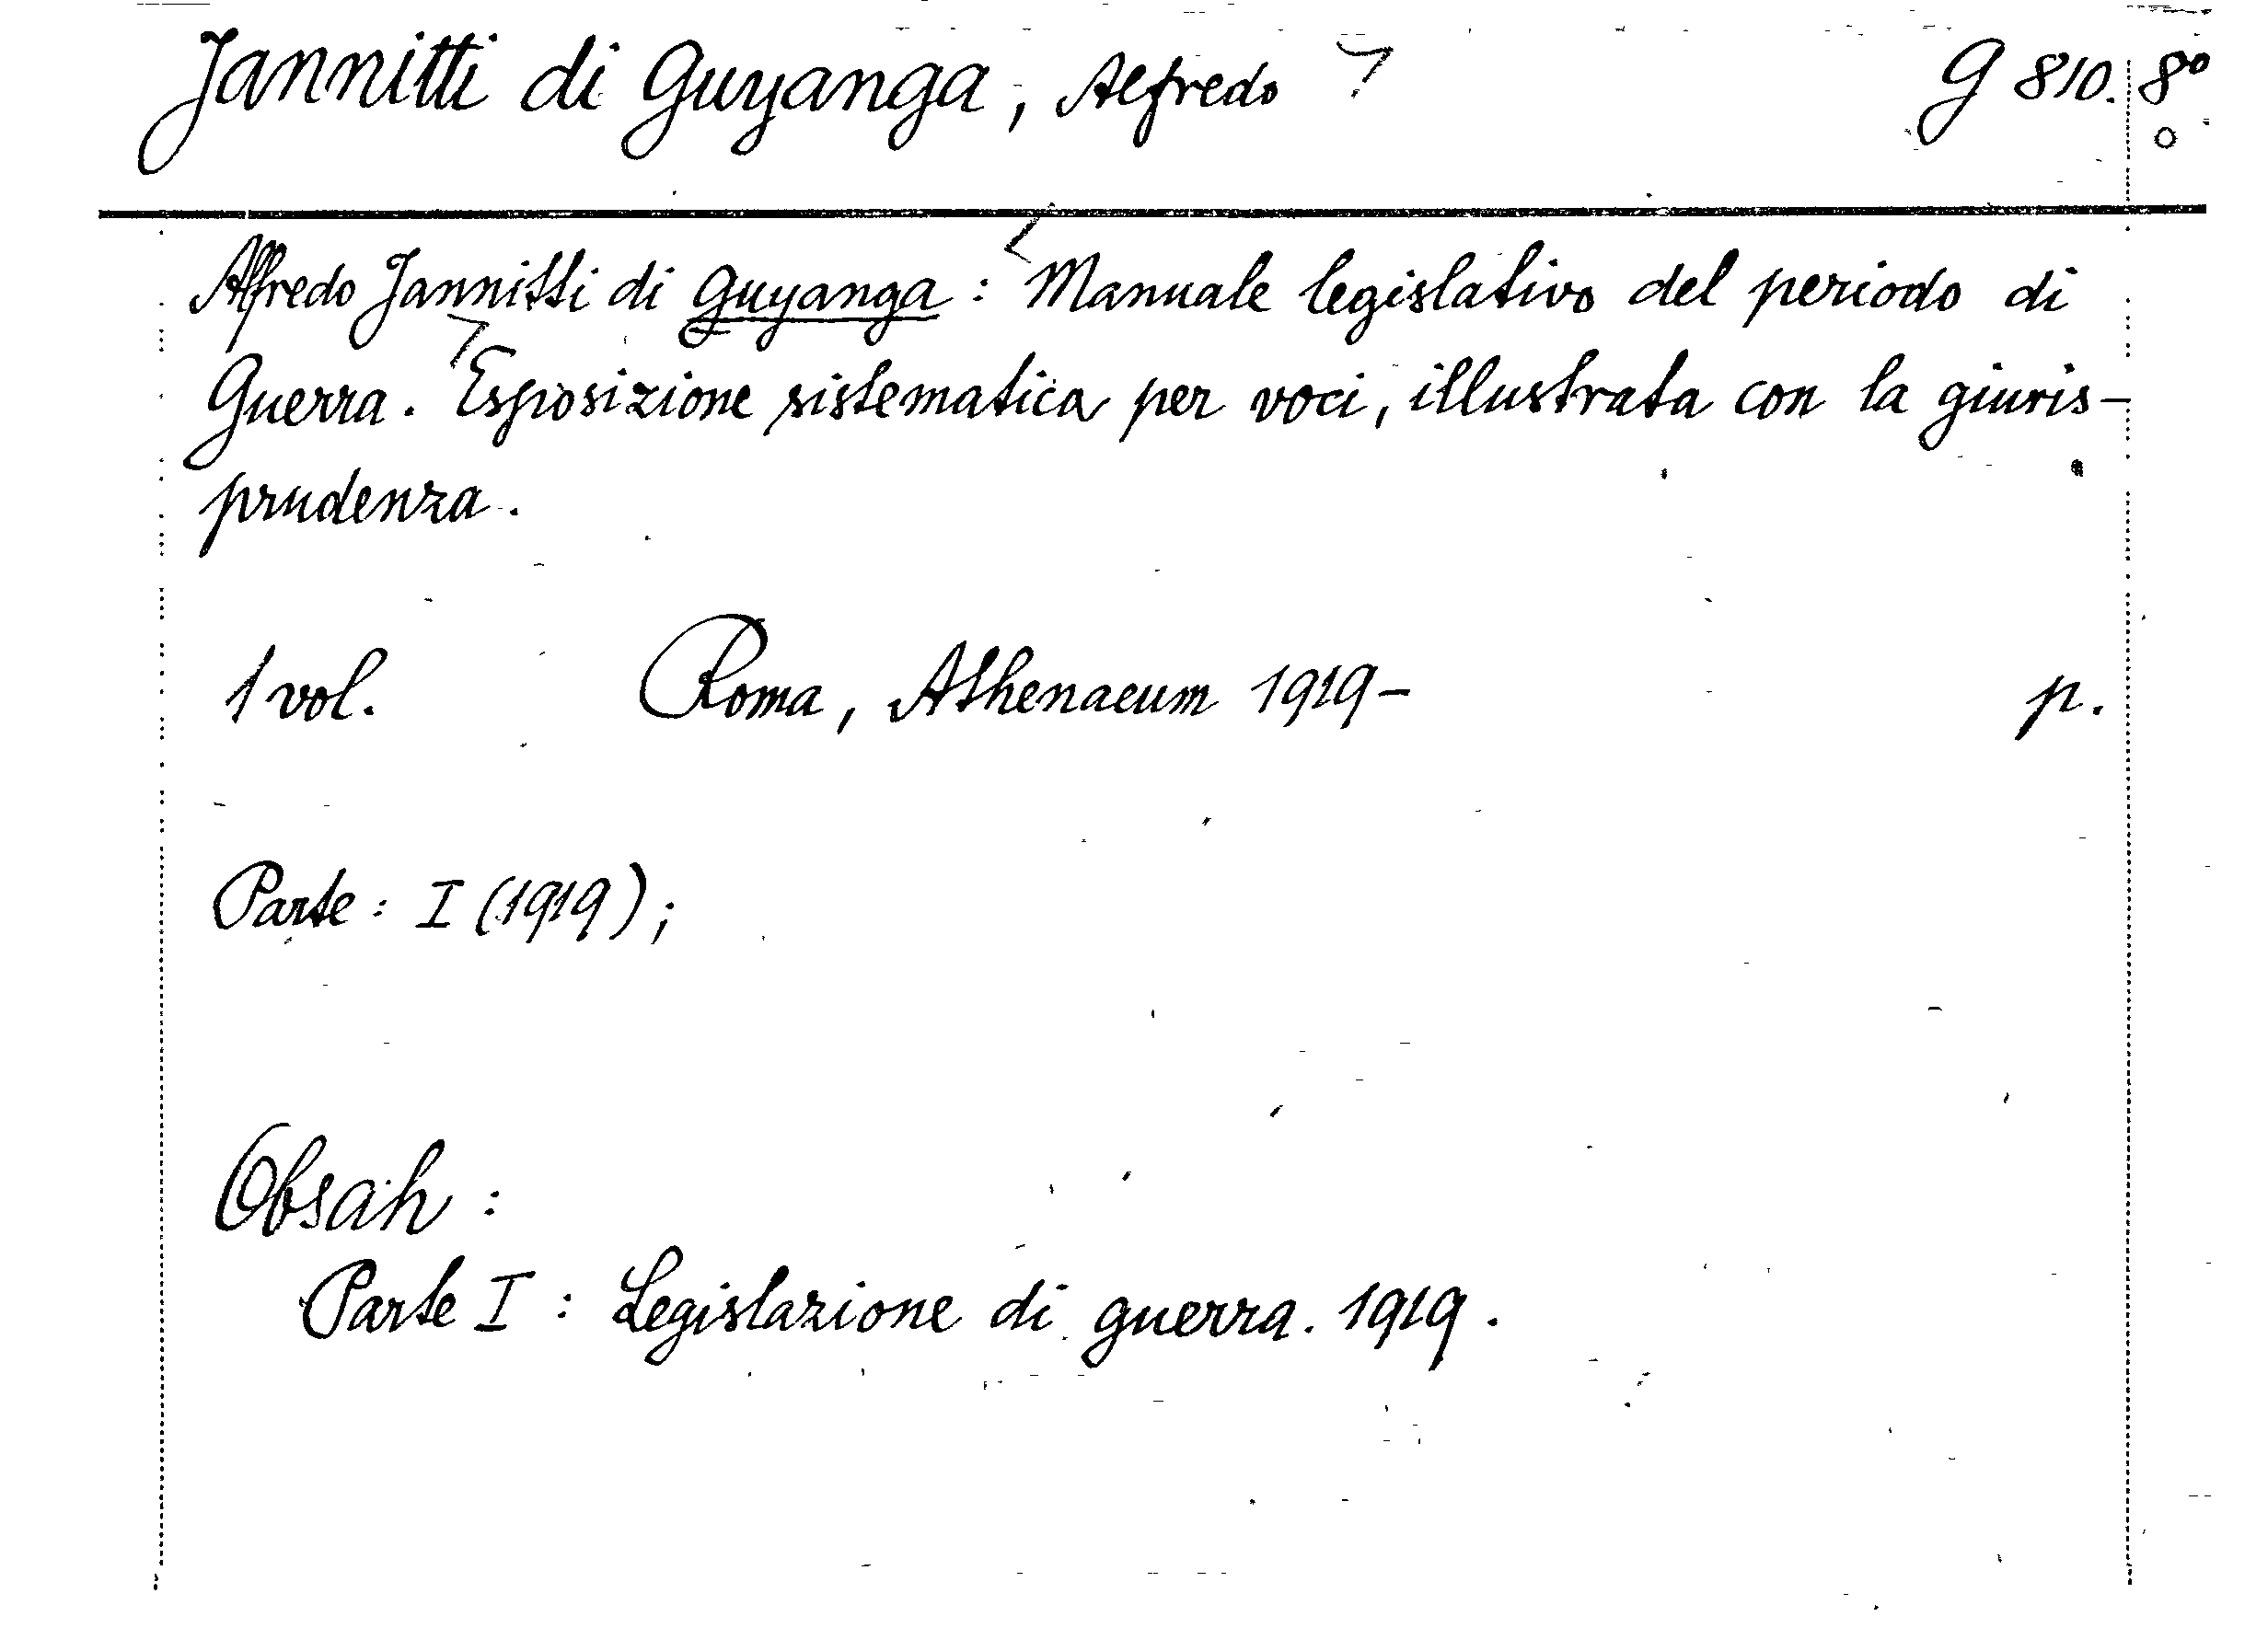 Jannitti di Guyanga, Alfredo G 810. 8°
Alfredo Jannitti di Guyanga: Manuale legislativo del periodo di
Guerra. Esposizione sistematica per voci, illustrata con la giuris-
prudenza.
1 vol. Roma, Athenaeum 1919- p.
Parte: I (1919);
Obsah:
Parte I: Legislazione di guerra. 1919.